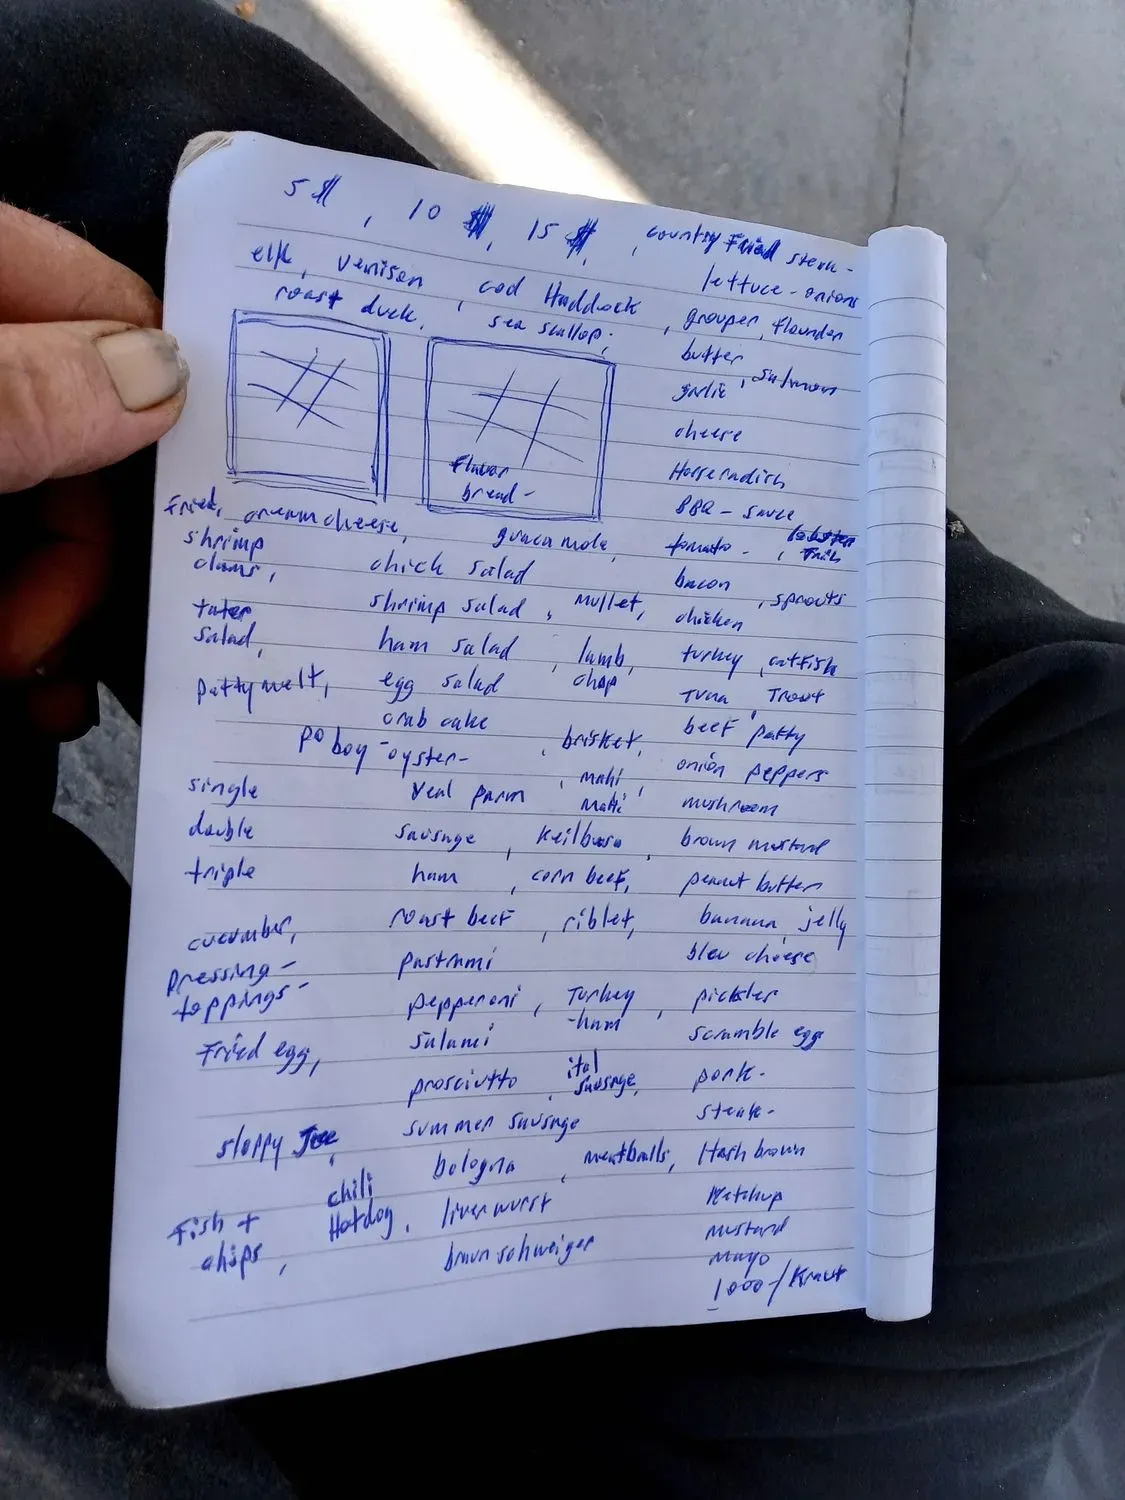 5 $, 10 $, 15 $, country Fried steak-
elk, venison, cod Haddock
lettuce-onions
roast duck, sea scallop,
grouper, flounder
butter
garlic, salmon
cheese
Flavor
Horseradish
bread-
BBQ - sauce
Fried, creamcheese, guacamole, tomato-, lobster
shrimp
tail
clams, chick salad
bacon, sprouts
tater
shrimp salad, mullet, chicken
salad, ham salad, lamb, turkey, catfish
chop
patty melt, egg salad
tuna, Trout
crab cake
beef patty
po boy-oyster-, brisket, onion peppers
single
veal parm, mahi, mushroom
mahi
double
sausage, keilbasa, brown mustard
triple
ham, corn beef, peanut butter
cucumber, roast beef, riblet, banana, jelly
Dressing-
pastrami
bleu cheese
toppings-
pepperoni, Turkey, pickles
-ham
Fried egg, salami
scramble egg
prosciutto, ital
sausage, pork-
sloppy Joe, summer sausage
steak-
bologna, meatballs, Hash brown
chili
Fish + Hotdog, liverwurst
Ketchup
chips, braunschweiger
mustard
mayo
1000-/Kraut